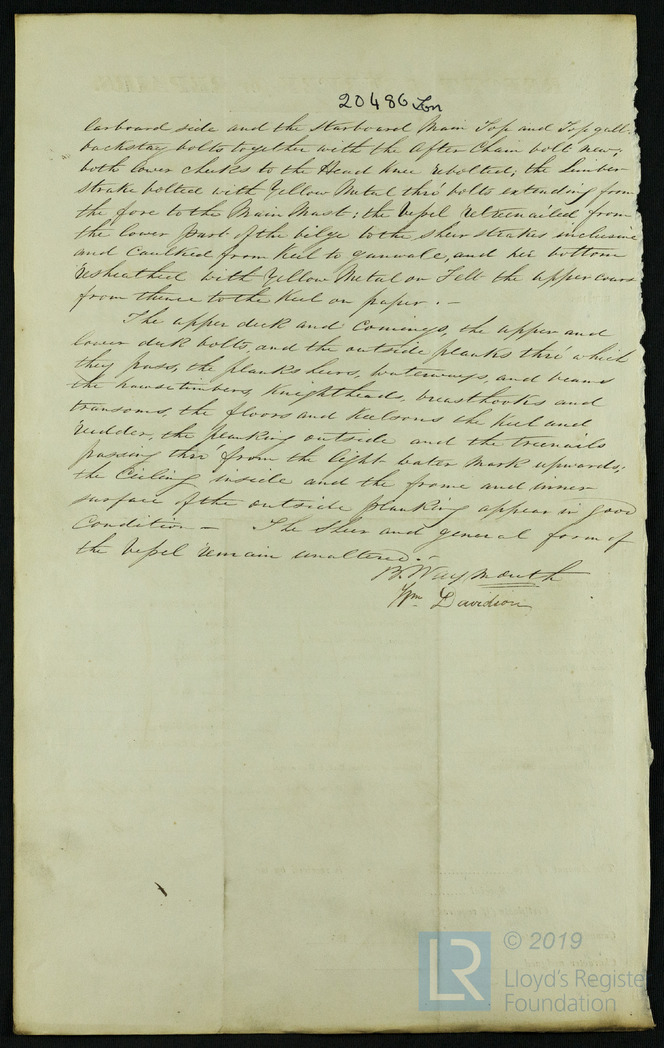 20486 Lon
larboard side and the Starboard Main Top and Top gall.
backstay bolts together with the After Chain bolt new;
both lower cheeks to the Head Knee rebolted; the limber
strake bolted with Yellow Metal thro' bolts extending from
the fore to the Main Mast; the Vessel retreenailed from
the lower part of the bilge to the sheer strakes inclusive
and Caulked from Keel to gunwale, and her bottom
resheathed with Yellow Metal on Felt the upper cours
from thence to the Keel on paper. —
The upper deck and Comings, the upper and
lower deck bolts, and the outside planks thro' which
they pass, the planksheers, waterways, and beams
the hawsetimbers, Knightheads, breasthooks and
transoms, the floors and Keelsons the Keel and
rudder, the planking outside and the treenails
passing thro' from the light water mark upwards;
the Cieling inside and the frame and inner
surface of the outside planking appear in good
Condition — The Sheer and general form of
the Vessel remain unaltered. —
B. Waymouth
Wm. Davidson
LR
© 2019
Lloyd's Register
Foundation